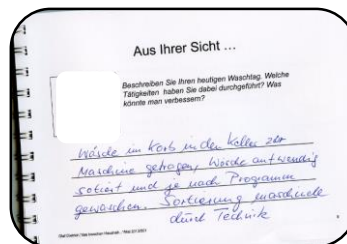 Aus Ihrer Sicht ...
Beschreiben Sie Ihren heutigen Waschtag. Welche
Tätigkeiten haben Sie dabei durchgeführt? Was
könnte man verbessern?
Wäsche im Korb in den Keller zur
Maschine getragen, Wäsche aufwendig
sotiert und je nach Programm
gewaschen. Sortierung maschinell
durch Technik